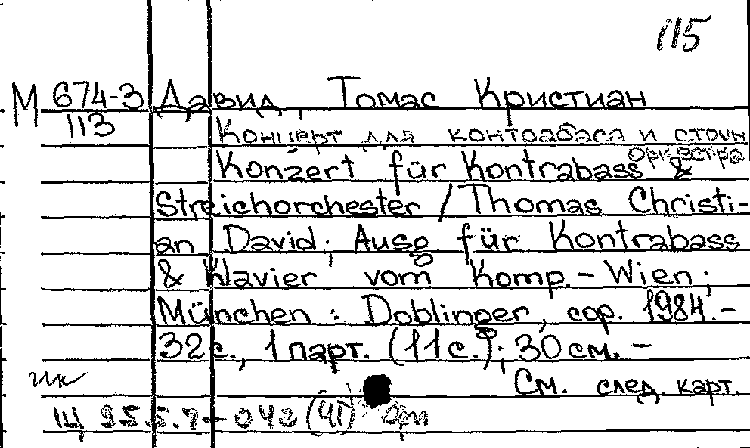 115
М 674-3 Давид, Томас Кристиан
113
Концерт для контрабаса и струн
оркестра
Konzert für Kontrabass &
Streichorchester / Thomas Christi-
an David; Ausg für Kontrabass
& Klavier vom Komp. - Wien;
München : Doblinger, cop. 1984. -
32 с., 1 парт. (11 с.); 30 см. -
См. след. карт.